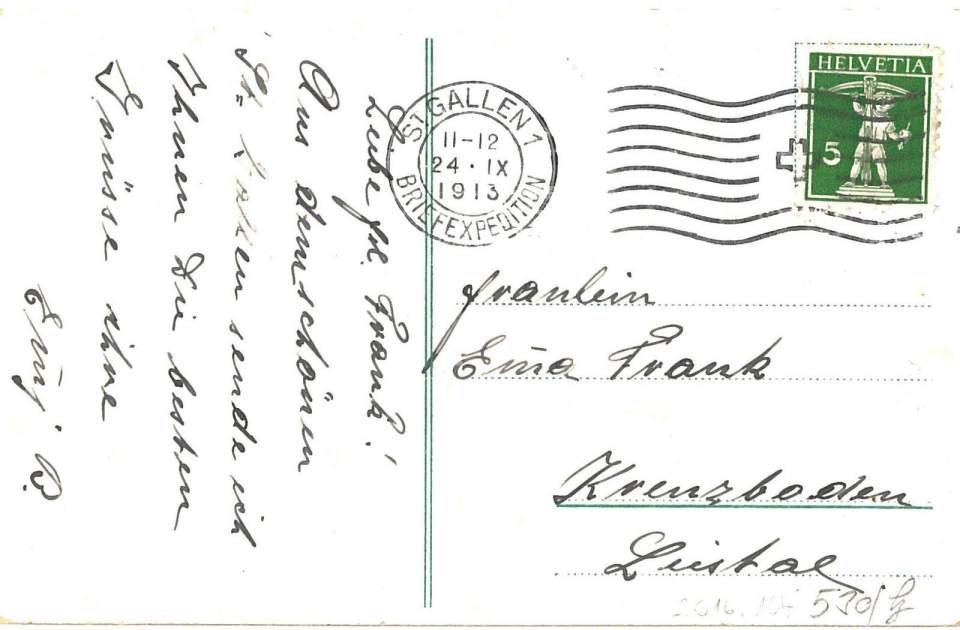 Liebe Frl. Frank!
Aus dem schönen
St. Gallen sende ich
Ihnen die besten
Grüsse ihre
HELVETIA
5
ST. GALLEN 1
11-12
24·IX
1913
BRIEFEXPEDITION
Fraulein
Em̄a Frank
Kreuzboden
Liestal
2016. 104 530/